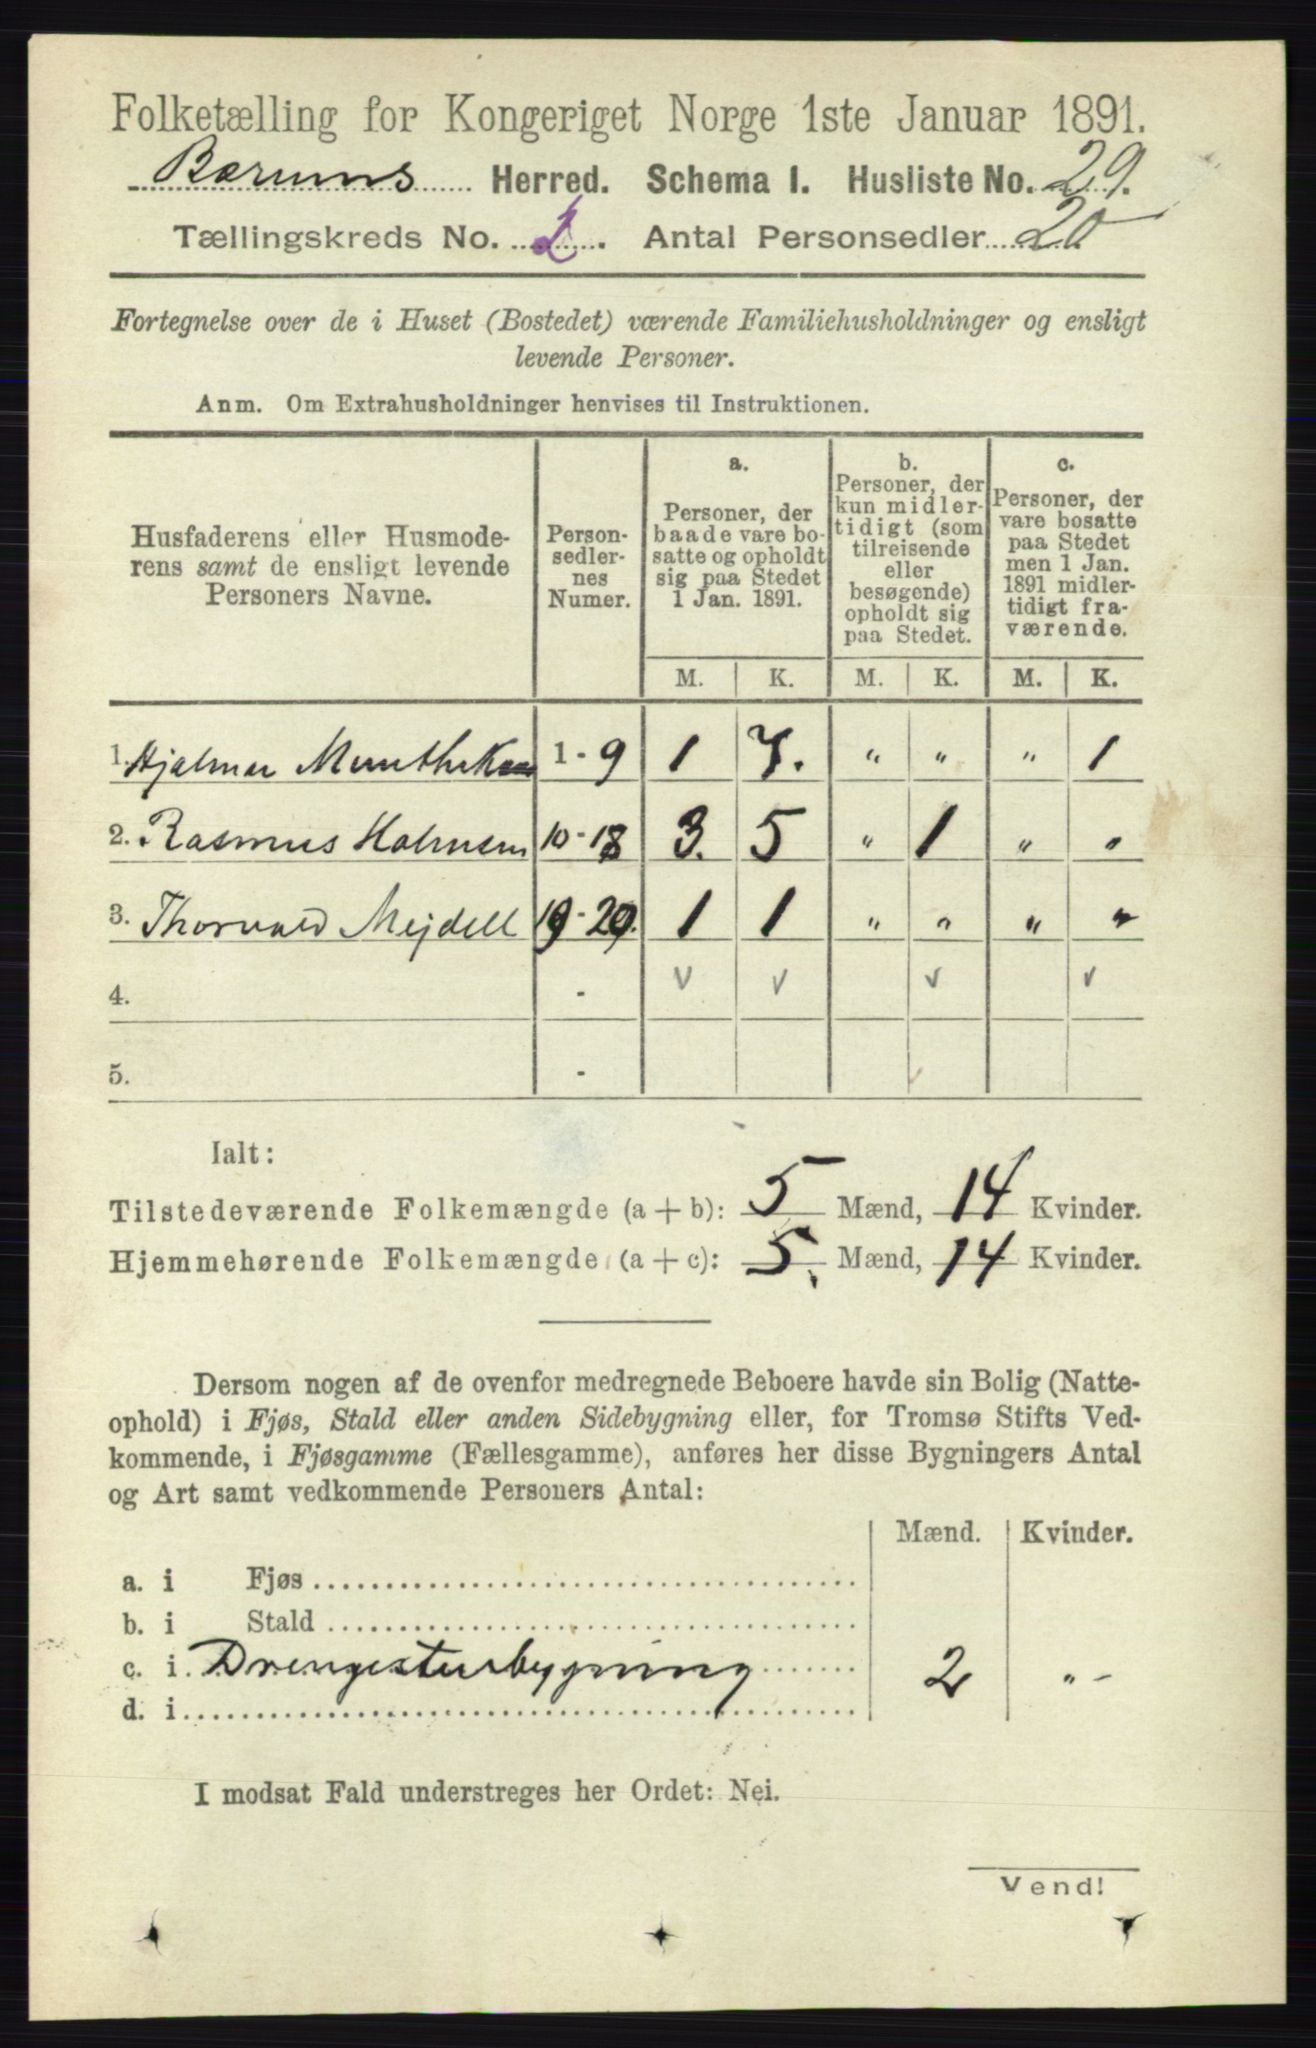 Folketælling for Kongeriget Norge 1ste Januar 1891.
Bærums Herred. Schema I. Husliste No. 29.
Tællingskreds No. 2. Antal Personsedler 20
Fortegnelse over de i Huset (Bostedet) værende Familiehusholdninger og ensligt
levende Personer.
Anm. Om Extrahusholdninger henvises til Instruktionen.
Husfaderens eller Husmode-
rens samt de ensligt levende
Personers Navne.
Person-
sedler-
nes
Numer.
a.
Personer, der
baade vare bo-
satte og opholdt
sig paa Stedet
1 Jan. 1891.
b.
Personer, der
kun midler-
tidigt (som
tilreisende
eller
besøgende)
opholdt sig
paa Stedet.
c.
Personer, der
vare bosatte
paa Stedet
men 1 Jan.
1891 midler-
tidigt fra-
værende.
M. K. M. K. M. K.
1. Hjalmar Munthe Kaas 1 - 9 1 7. " " " 1
2. Rasmus Halmsen 10 - 18 3. 5 " 1 " "
3. Thorvald Mejdell 19 - 20. 1 1 " " " "
4. - v v v v
5. -
Ialt:
Tilstedeværende Folkemængde (a + b): 5 Mænd, 14 Kvinder.
Hjemmehørende Folkemængde (a + c): 5. Mænd, 14 Kvinder.
Dersom nogen af de ovenfor medregnede Beboere havde sin Bolig (Natte-
ophold) i Fjøs, Stald eller anden Sidebygning eller, for Tromsø Stifts Ved-
kommende, i Fjøsgamme (Fællesgamme), anføres her disse Bygningers Antal
og Art samt vedkommende Personers Antal:
Mænd. Kvinder.
a. i Fjøs
b. i Stald
c. i Drengestubygning 2 " -
d. i
I modsat Fald understreges her Ordet: Nei.
Vend!